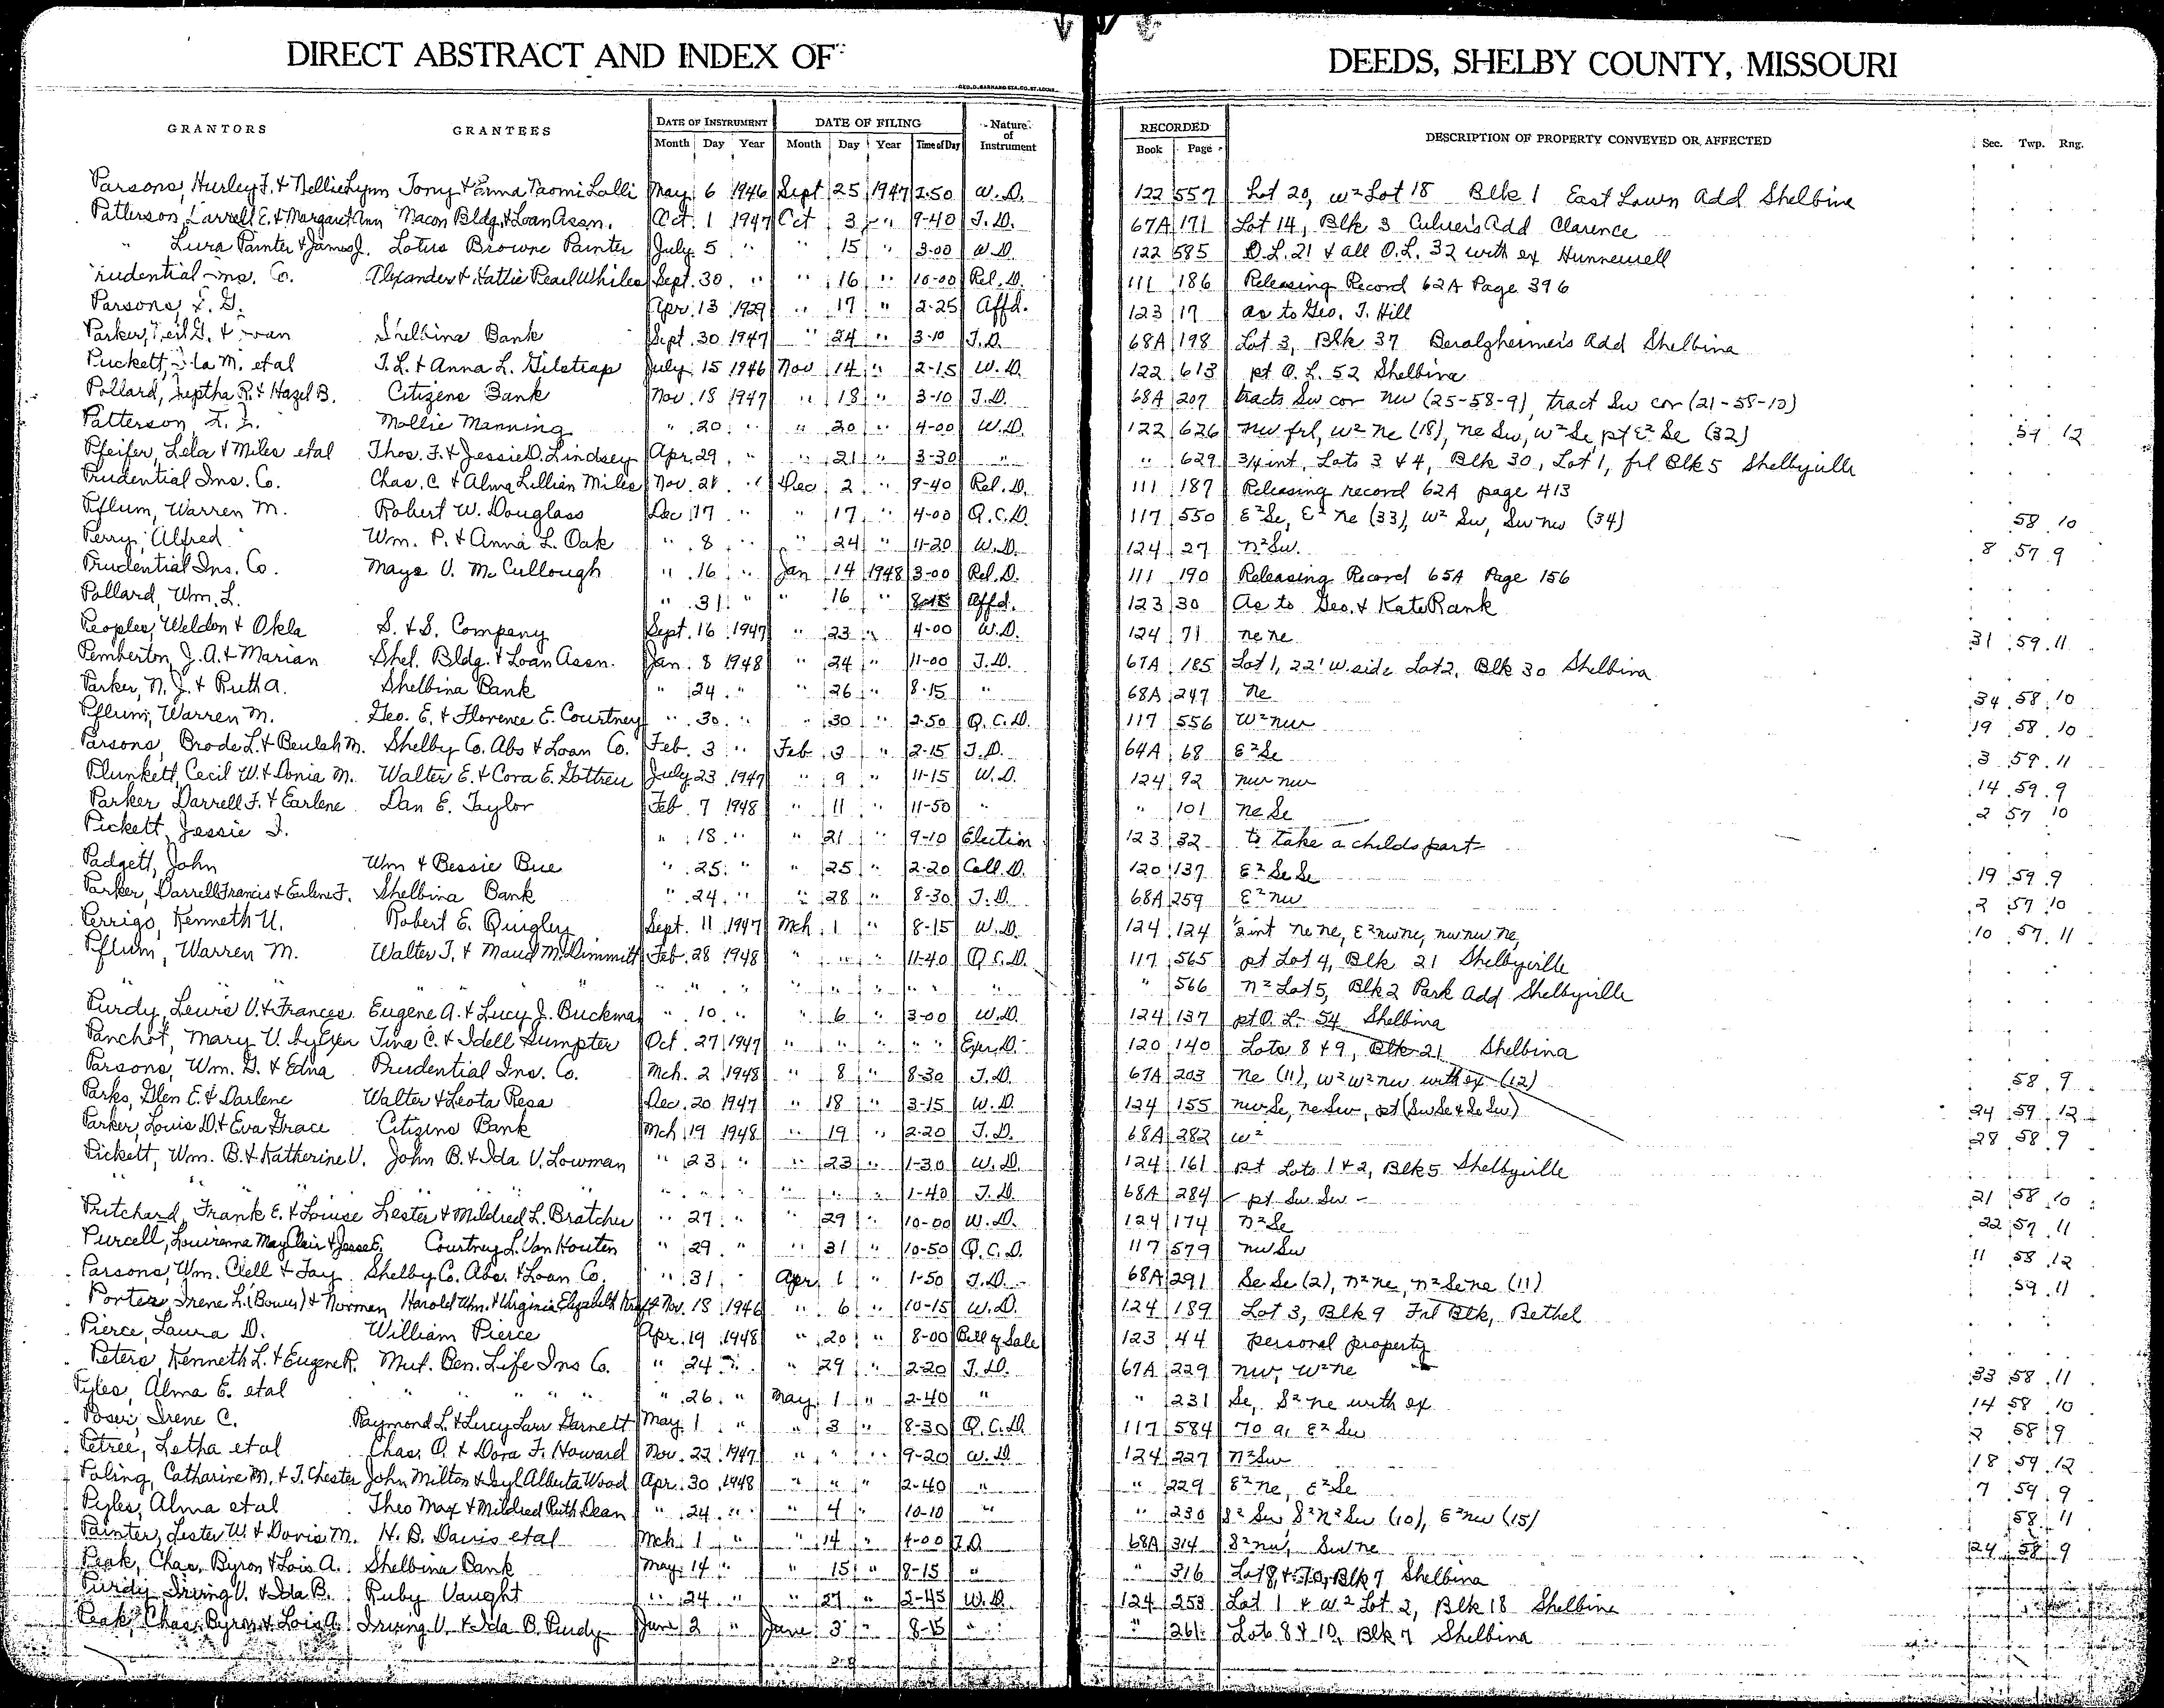 DIRECT ABSTRACT AND INDEX OF DEEDS, SHELBY COUNTY, MISSOURI
GRANTORS GRANTEES DATE OF INSTRUMENT DATE OF FILING Nature of Instrument RECORDED DESCRIPTION OF PROPERTY CONVEYED OR AFFECTED Sec. Twp. Rng.
Month Day Year Month Day Year Time of Day Book Page
Parsons, Hurley F. & Nellie Lynn Tony & Erma Naomi Lolli May 6 1946 Sept 25 1947 2.50 W.D. 122 557 Lot 20, W² Lot 18 Blk 1 East Lawn Add Shelbina
Patterson, Darrell E. & Margaret Ann Macon Bldg. & Loan Assn. Oct. 1 1947 Oct 3 " 9-40 T.D. 67A 171 Lot 14, Blk 3 Culver's Add Clarence
" Lura Painter & James J. Lotus Browne Painter July 5 " 15 " 3-00 W.D. 122 585 O.L. 21 & all O.L. 32 with ex Hunnewell
rudential Ins. Co. Alexander & Hattie Pearl Whiles Sept. 30 " " 16 " 10-00 Rel. D. 111 186 Releasing Record 62A Page 396
Parsons, G. Apr. 13 1929 " 17 " 2-25 Affd. 123 17 as to Geo. T. Hill
Parker, Neil G. & Shelbina Bank Sept. 30 1947 " 24 " 3-10 T.D. 68A 198 Lot 3, Blk 37 Beralzheimer's Add Shelbina
Puckett, M. etal T.L. & Anna L. Gilstrap July 15 1946 Nov 14 " 2-15 W.D. 122 613 pt O.L. 52 Shelbina
Pollard, Jeptha R. & Hazel B. Citizens Bank Nov. 18 1947 " 18 " 3-10 T.D. 68A 207 tracts Sw cor nw (25-58-9), tract Sw cor (21-58-10)
Patterson, Mollie Manning " 20 " " 20 " 4-00 W.D. 122 626 nw frl, W² ne (18), ne Sw, W² Se, pt E² Se (32) 57 12
Pfeifer, Lela & Miles etal Thos. F. & Jessie D. Lindsey Apr. 29 " " 21 " 3-30 " " 629 3/4 int, Lots 3 & 4, Blk 30, Lot 1, frl Blk 5 Shelbyville
Prudential Ins. Co. Chas. C. & Alma Lillian Miles Nov. 21 " Dec 2 " 9-40 Rel. D. 111 187 Releasing record 62A page 413
Pflum, Warren M. Robert W. Douglass Dec 17 " " 17 " 4-00 Q.C.D. 117 550 E² Se, E² ne (33), W² Sw, Sw nw (34) 58 10
Perry, Alfred Wm. P. & Anna L. Oak " 8 " " 24 " 11-20 W.D. 124 27 n² Sw. 8 57 9
Prudential Ins. Co. Maye V. McCullough " 16 " Jan 14 1948 3-00 Rel. D. 111 190 Releasing Record 65A Page 156
Pollard, Wm. L. " 31 " " 16 " 8-15 Affd. 123 30 As to Geo. & Kate Rank
Peoples, Weldon & Okla S. & S. Company Sept. 16 1947 " 23 " 4-00 W.D. 124 71 ne ne 31 59 11
Pemberton, J.A. & Marian Shel. Bldg. & Loan Assn. Jan. 8 1948 " 24 " 11-00 T.D. 67A 185 Lot 1, 22' W. side Lot 2, Blk 30 Shelbina
Parker, N.J. & Ruth A. Shelbina Bank " 24 " " 26 " 8-15 " 68A 247 ne 34 58 10
Pflum, Warren M. Geo. E. & Florence E. Courtney " 30 " " 30 " 2-50 Q.C.D. 117 556 W² nw 19 58 10
Parsons, Brode L. & Beulah M. Shelby Co. Abs & Loan Co. Feb. 3 " Feb 3 " 2-15 T.D. 64A 68 E² Se 3 59 11
Plunkett, Cecil W. & Donia M. Walter E. & Cora E. Gottreu July 23 1947 " 9 " 11-15 W.D. 124 92 nw nw 14 59 9
Parker Darrell F. & Earlene Dan E. Taylor Feb. 7 1948 " 11 " 11-50 " " 101 ne Se 2 57 10
Pickett, Jessie T. " 18 " " 21 " 9-10 Election 123 32 to take a childs part
Padgett, John Wm & Bessie Bue " 25 " " 25 " 2-20 Coll. D. 120 137 E² Se Se 19 59 9
Parker, Darrell Francis & Earlene F. Shelbina Bank " 24 " " 28 " 8-30 T.D. 68A 259 E² nw 2 57 10
Perrigo, Kenneth U. Robert E. Quigley Sept. 11 1947 Mch. 1 " 8-15 W.D. 124 124 int ne ne, E² nw ne, nw nw ne, 10 57 11
Pflum, Warren M. Walter T. & Maud M. Dimmitt Feb. 28 1948 " " " 11-40 Q.C.D. 117 565 pt Lot 4, Blk 21 Shelbyville
" " " " " " " " " " " " " 566 n² Lot 5, Blk 2 Park Add Shelbyville
Purdy, Lewis V. & Frances Eugene A. & Lucy J. Buckman " 10 " " 6 " 3-00 W.D. 124 137 pt O.L. 54 Shelbina
Panchot, Mary V. by Exer Tina C. & Idell Sumpter Oct. 27 1947 " " " " " Exer. D. 120 140 Lots 8 & 9, Blk 21 Shelbina
Parsons, Wm. G. & Edna Prudential Ins. Co. Mch. 2 1948 " 8 " 8-30 T.D. 67A 203 ne (11), W² W² nw with ex (12) 58 9
Parks, Glen E. & Darlene Walter & Leota Resa Dec. 20 1947 " 18 " 3-15 W.D. 124 155 nw Se, ne Sw, pt (Sw Se & Se Sw) 24 59 12
Parker, Louis D. & Eva Grace Citizens Bank Mch 19 1948 " 19 " 2-20 T.D. 68A 282 W² 28 58 9
Pickett, Wm. B. & Katherine V. John B. & Ida V. Lowman " 23 " " 23 " 1-30 W.D. 124 161 pt Lots 1 & 2, Blk 5 Shelbyville
" " " " " " " " " " 1-40 T.D. 68A 284 pt Sw Sw 21 58 10
Pritchard, Frank E. & Louise Lester & Mildred L. Bratcher " 27 " " 29 " 10-00 W.D. 124 174 n² Se 22 57 11
Purcell, Louirenna May Clair & Jesse E. Courtney L. Van Houten " 29 " " 31 " 10-50 Q.C.D. 117 579 nw Sw 11 58 12
Parsons, Wm. Clell & Fay Shelby Co. Abs. & Loan Co. " 31 " Apr. 1 " 1-50 T.D. 68A 291 Se Se (2), n² ne, n² Se ne (11) 59 11
Porter, Irene L. (Bower) & Norman Harold Wm. & Virginia Elizabeth Kraft Nov. 18 1946 " 6 " 10-15 W.D. 124 189 Lot 3, Blk 9 Frl Blk, Bethel
Pierce, Laura D. William Pierce Apr. 19 1948 " 20 " 8-00 Bill of Sale 123 44 personal property
Peters, Kenneth L. & Eugene R. Mut. Ben. Life Ins Co. " 24 " " 29 " 2-20 T.D. 67A 229 nw, W² ne 33 58 11
Pyles, Alma E. etal " " " " " " 26 " May 1 " 2-40 " " 231 Se, S² ne with ex 14 58 10
Poser, Irene C. Raymond L. & Lucy Larr Garnett May 1 " " 3 " 8-30 Q.C.D. 117 584 70 a. E² Sw 58 9
Petree, Letha etal Chas. O. & Dora F. Howard Nov. 22 1947 " " " 9-20 W.D. 124 227 n² Sw 18 59 12
Poling, Catharine M. & T. Chester John Milton & Alberta Wood Apr. 30 1948 " " " 2-40 " " 229 E² ne, E² Se 7 59 9
Pyles, Alma etal Theo Max & Mildred Ruth Dean " 24 " " 4 " 10-10 " " 230 S² Sw S² N² Sw (10), E² nw (15) 58 11
Painter, Lester W. & Davis M. H.B. Davis etal Mch. 1 " " 14 " 4-00 T.D. 68A 314 S² nw, Sw ne 24 58 9
Peak, Chas. Byron & Lois A. Shelbina Bank May 14 " " 15 " 8-15 " " 316 Lot 8 & 10, Blk 7 Shelbina
Purdy Irving V. & Ida B. Ruby Vaught " 24 " " 27 " 2-45 W.D. 124 253 Lot 1 & W² Lot 2, Blk 18 Shelbina
Peak, Chas. Byron & Lois A. Irving V. & Ida B. Purdy June 2 " June 3 " 8-15 " " 261 Lots 8 & 10, Blk 7 Shelbina